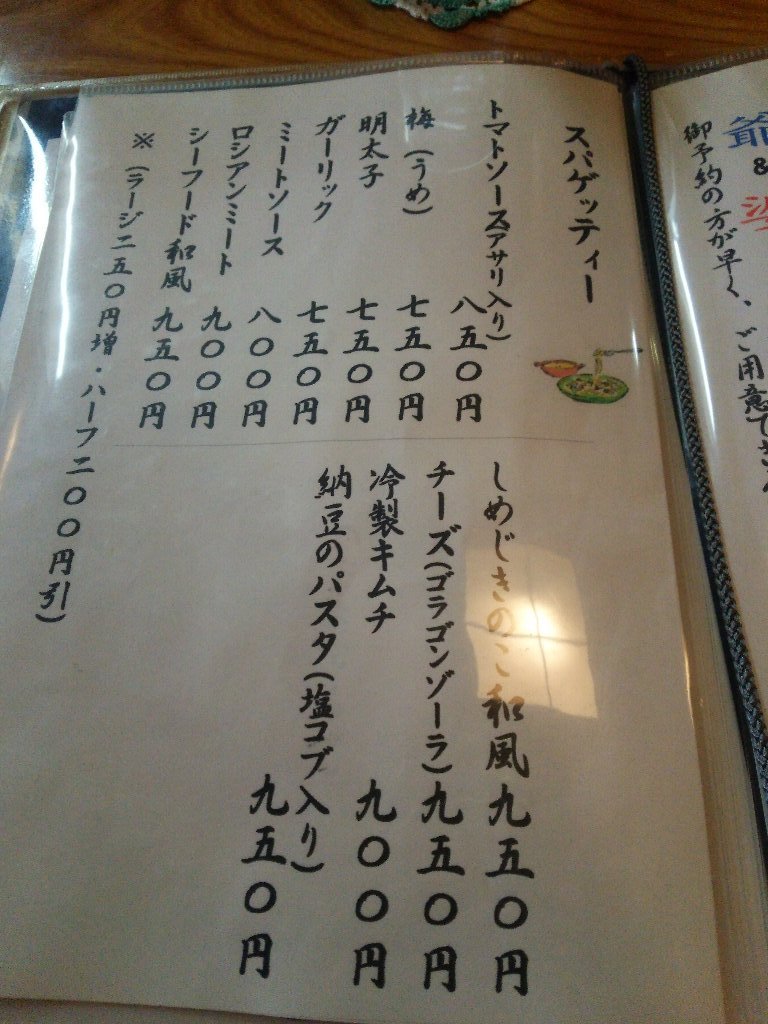 爺
&
婆
御予約の方が早く、ご用意でき
スパゲッティー
トマトソース(アサリ入り) 八五〇円
梅(うめ) 七五〇円
明太子 七五〇円
ガーリック 七五〇円
ミートソース 八〇〇円
ロシアンミート 九〇〇円
シーフード和風 九五〇円
※(ラージ二五〇円増・ハーフ二〇〇円引)
しめじきのこ和風 九五〇円
チーズ(ゴラゴンゾーラ) 九五〇円
冷製キムチ 九〇〇円
納豆のパスタ(塩コブ入り) 九五〇円